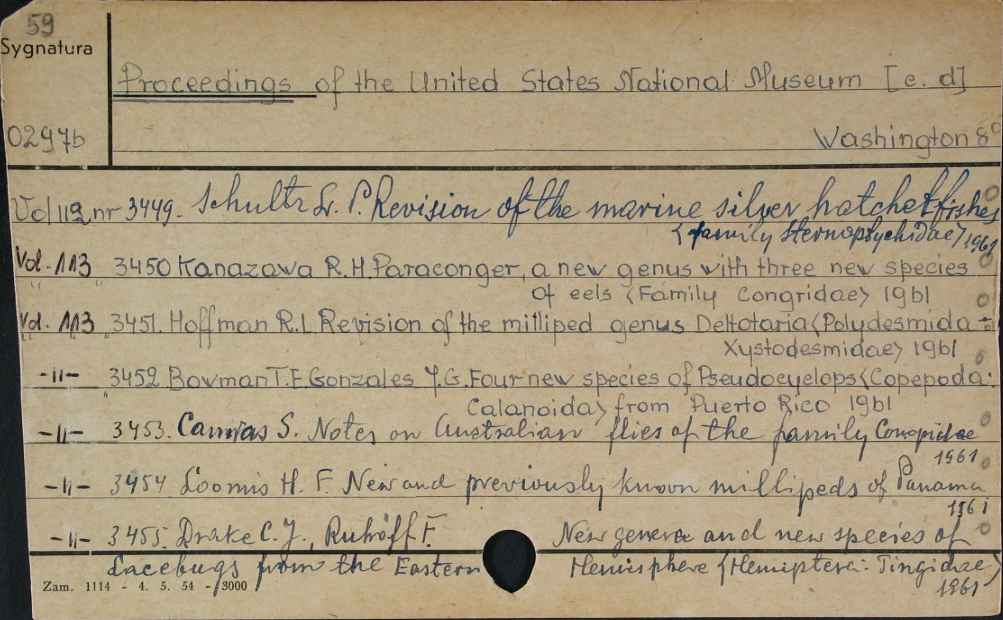 59
Sygnatura
Proceedings of the United States National Museum [c. d]
0297b
Washington 8°
Vol 112 nr 3449. Schultz L. P. Revision of the marine silver hatchetfishes
<family Sternoptychidae> 1961
Vol. 113 3450 Kanazawa R. H. Paraconger, a new genus with three new species
of eels <Family Congridae> 1961
Vol. 113 3451. Hoffman R. L. Revision of the milliped genus Deltotaria <Polydesmida -
Xystodesmidae> 1961
-"- 3452 Bowman T. E. Gonzales J. G. Four new species of Pseudocyclops <Copepoda:
Calanoida> from Puerto Rico 1961
-"- 3453. Camras S. Notes on Australian flies of the family Conopidae
1961
-"- 3454 Loomis H. F. New and previously known millipeds of Panama
1961
-"- 3455. Drake C. J., Ruhoff F. New genera and new species of
Lacebugs from the Eastern Hemisphere <Hemiptera: Tingidae>
Zam. 1114 - 4. 5. 54 - 3000 1961